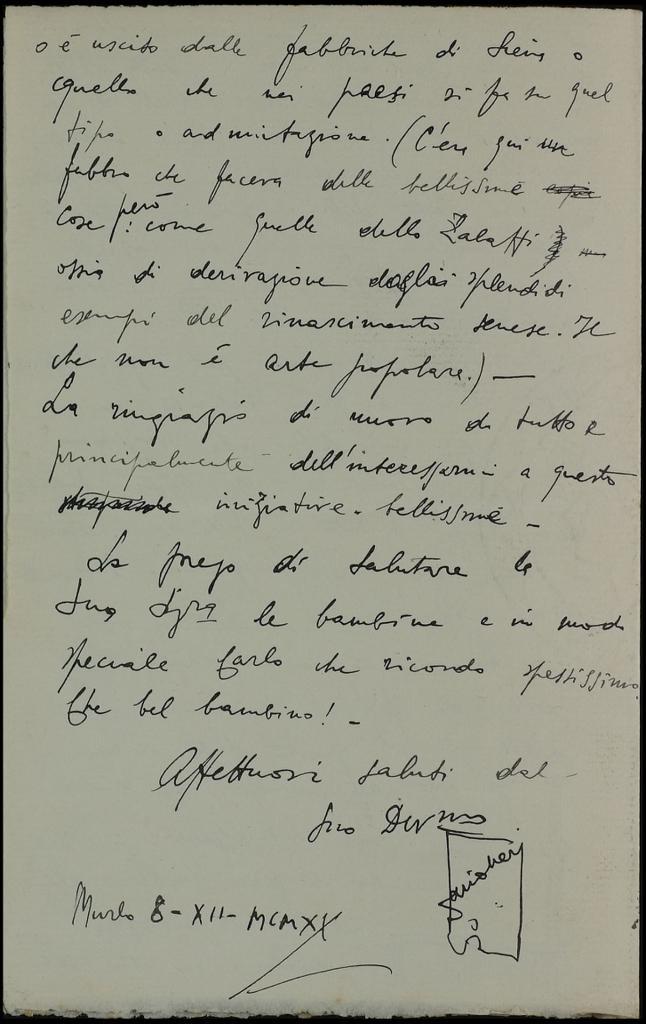 o è uscito dalle fabbriche di Siena o
quello che nei paesi si fa su quel
tipo o ad imitazione. (C'era qui un
fabbro che faceva delle bellissime
cose però: come quelle dello Zalaffi
ossia di derivazione dagli splendidi
esempi del rinascimento senese. Il
che non è arte popolare.) —
La ringrazio di nuovo di tutto e
principalmente dell'interessarmi a questo
iniziative bellissime —
La prego di salutare la
Sua Sigra le bambine e in modo
speciale Carlo che ricordo spessissimo.
Che bel bambino! —
Affettuosi saluti dal
Suo
Murlo 8 - XII - MCMXX